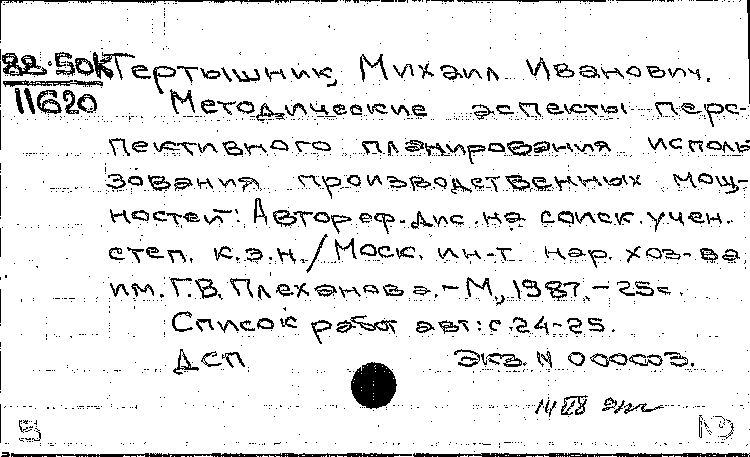 88-50К Тертышник, Михаил Иванович.
11620 Методические аспекты перс-
пективного планирования исполь
зования производственных мощ-
ностей: Автореф. дис. на соиск. учен.
степ. к.э.н. / Моск. ин-т нар. хоз-ва
им. Г.В. Плеханова. - М., 1987. - 25с.
Список работ авт: с. 24-25.
ДСП Экз. N 000003.